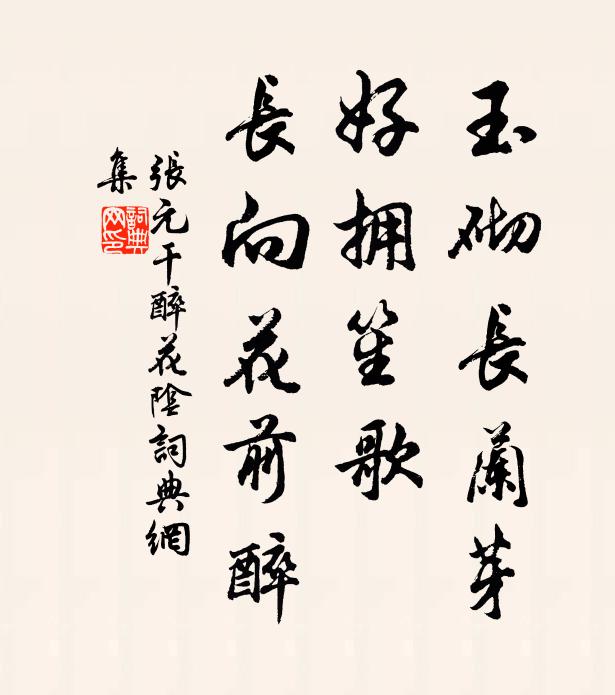 玉砌長蘭芽
好拥笙歌
長向花前醉
張元干醉花陰詞典網
集
詞典
网印